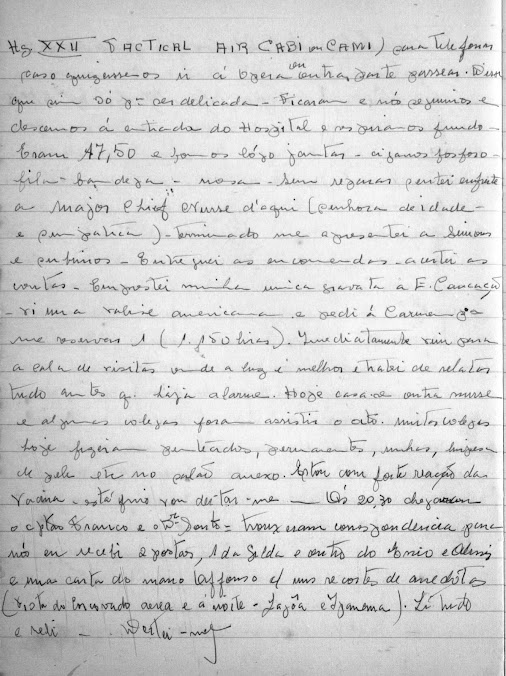 Hq XXII TACTICAL AIR CABI ou CAMI) para telefonar
caso quizessemos ir á Opera ou outra parte passear. Disse
que sim só pª ser delicada - Ficaram e nós seguimos e
descemos á entrada do Hospital e
Eram 17,50 e fomos lógo jantar - cigarros fosforo -
fila - bandeja - mesa - Sem reparar sentei enfrente
a Major Chief Nurse d'aqui (senhora de idade -
e simpatica) - terminado me apresentei a
e subimos - Entreguei as encomendas - acertei as
contas - Emprestei minha unica gravata a E. Conceição
- vi uma valise americana e pedi á Carmen pª
me reservar 1 (1.150 liras). Imediatamente vim para
a sala de visitas onde a luz é melhor e tratei de relatar
tudo antes q. haja alarme. Hoje casa-se outra nurse
e algumas colegas foram assistir o ato. muitas colegas
hoje fizeram penteados, permanentes, unhas, limpesa
de pele etc no salão anexo. Estou com forte reação da
vacina - está frio vou deitar-me — Ás 20,30 chegaram
o Cptão Franco e o Dr. - trouxeram correspondencia para
nós eu recebi 2 postais, 1 da Gilda e outro do Enio e
e uma carta do mano Affonso c/ uns recortes de anedotas
(vista do Corcovado aerea e á noite - Lagôa e Ipanema). Li tudo
e reli — . Deitei-me